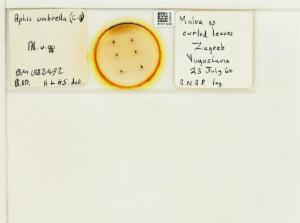 Aphis umbrella (C-B)
Al. v. gg
BM 1982-492
B.D. H.L.G.S. det.
Malva sp
curled leaves
Zagreb
Yugoslavia
23 July 64